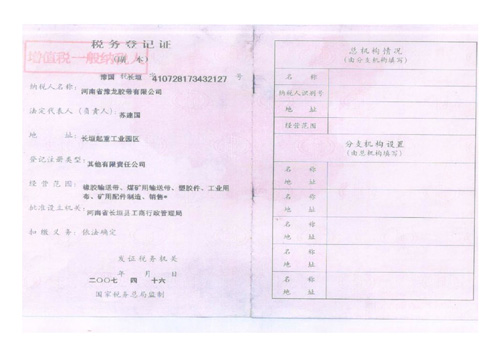 税务登记证
(副本)
增值税一般纳税人
豫国 税 长垣 410728173432127 号
纳税人名称: 河南省豫龙胶带有限公司
法定代表人(负责人): 苏建国
地 址: 长垣起重工业园区
登记注册类型: 其他有限责任公司
经营范围: 橡胶输送带、煤矿用输送带、塑胶件、工业用
布、矿用配件制造、销售*
批准设立机关: 河南省长垣县工商行政管理局
扣缴义务: 依法确定
发证税务机关
年 月 日
二〇〇七 四 十六
国家税务总局监制
总机构情况
(由分支机构填写)
名 称
纳税人识别号
地 址
经营范围
分支机构设置
(由总机构填写)
名 称
地 址
名 称
地 址
名 称
地 址
名 称
地 址
名 称
地 址